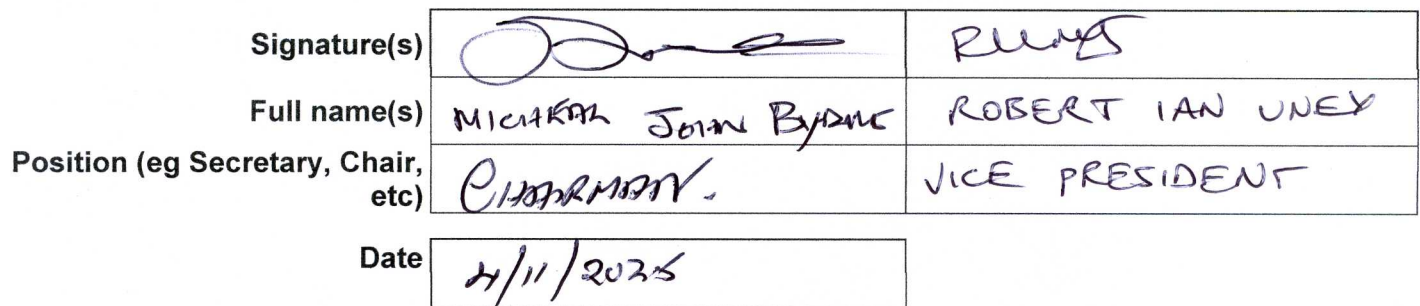 Signature(s)
Full name(s) MICHEAL JOHN BYRNE ROBERT IAN UNEY
Position (eg Secretary, Chair,
etc) CHAIRMAN. VICE PRESIDENT
Date 4/11/2025